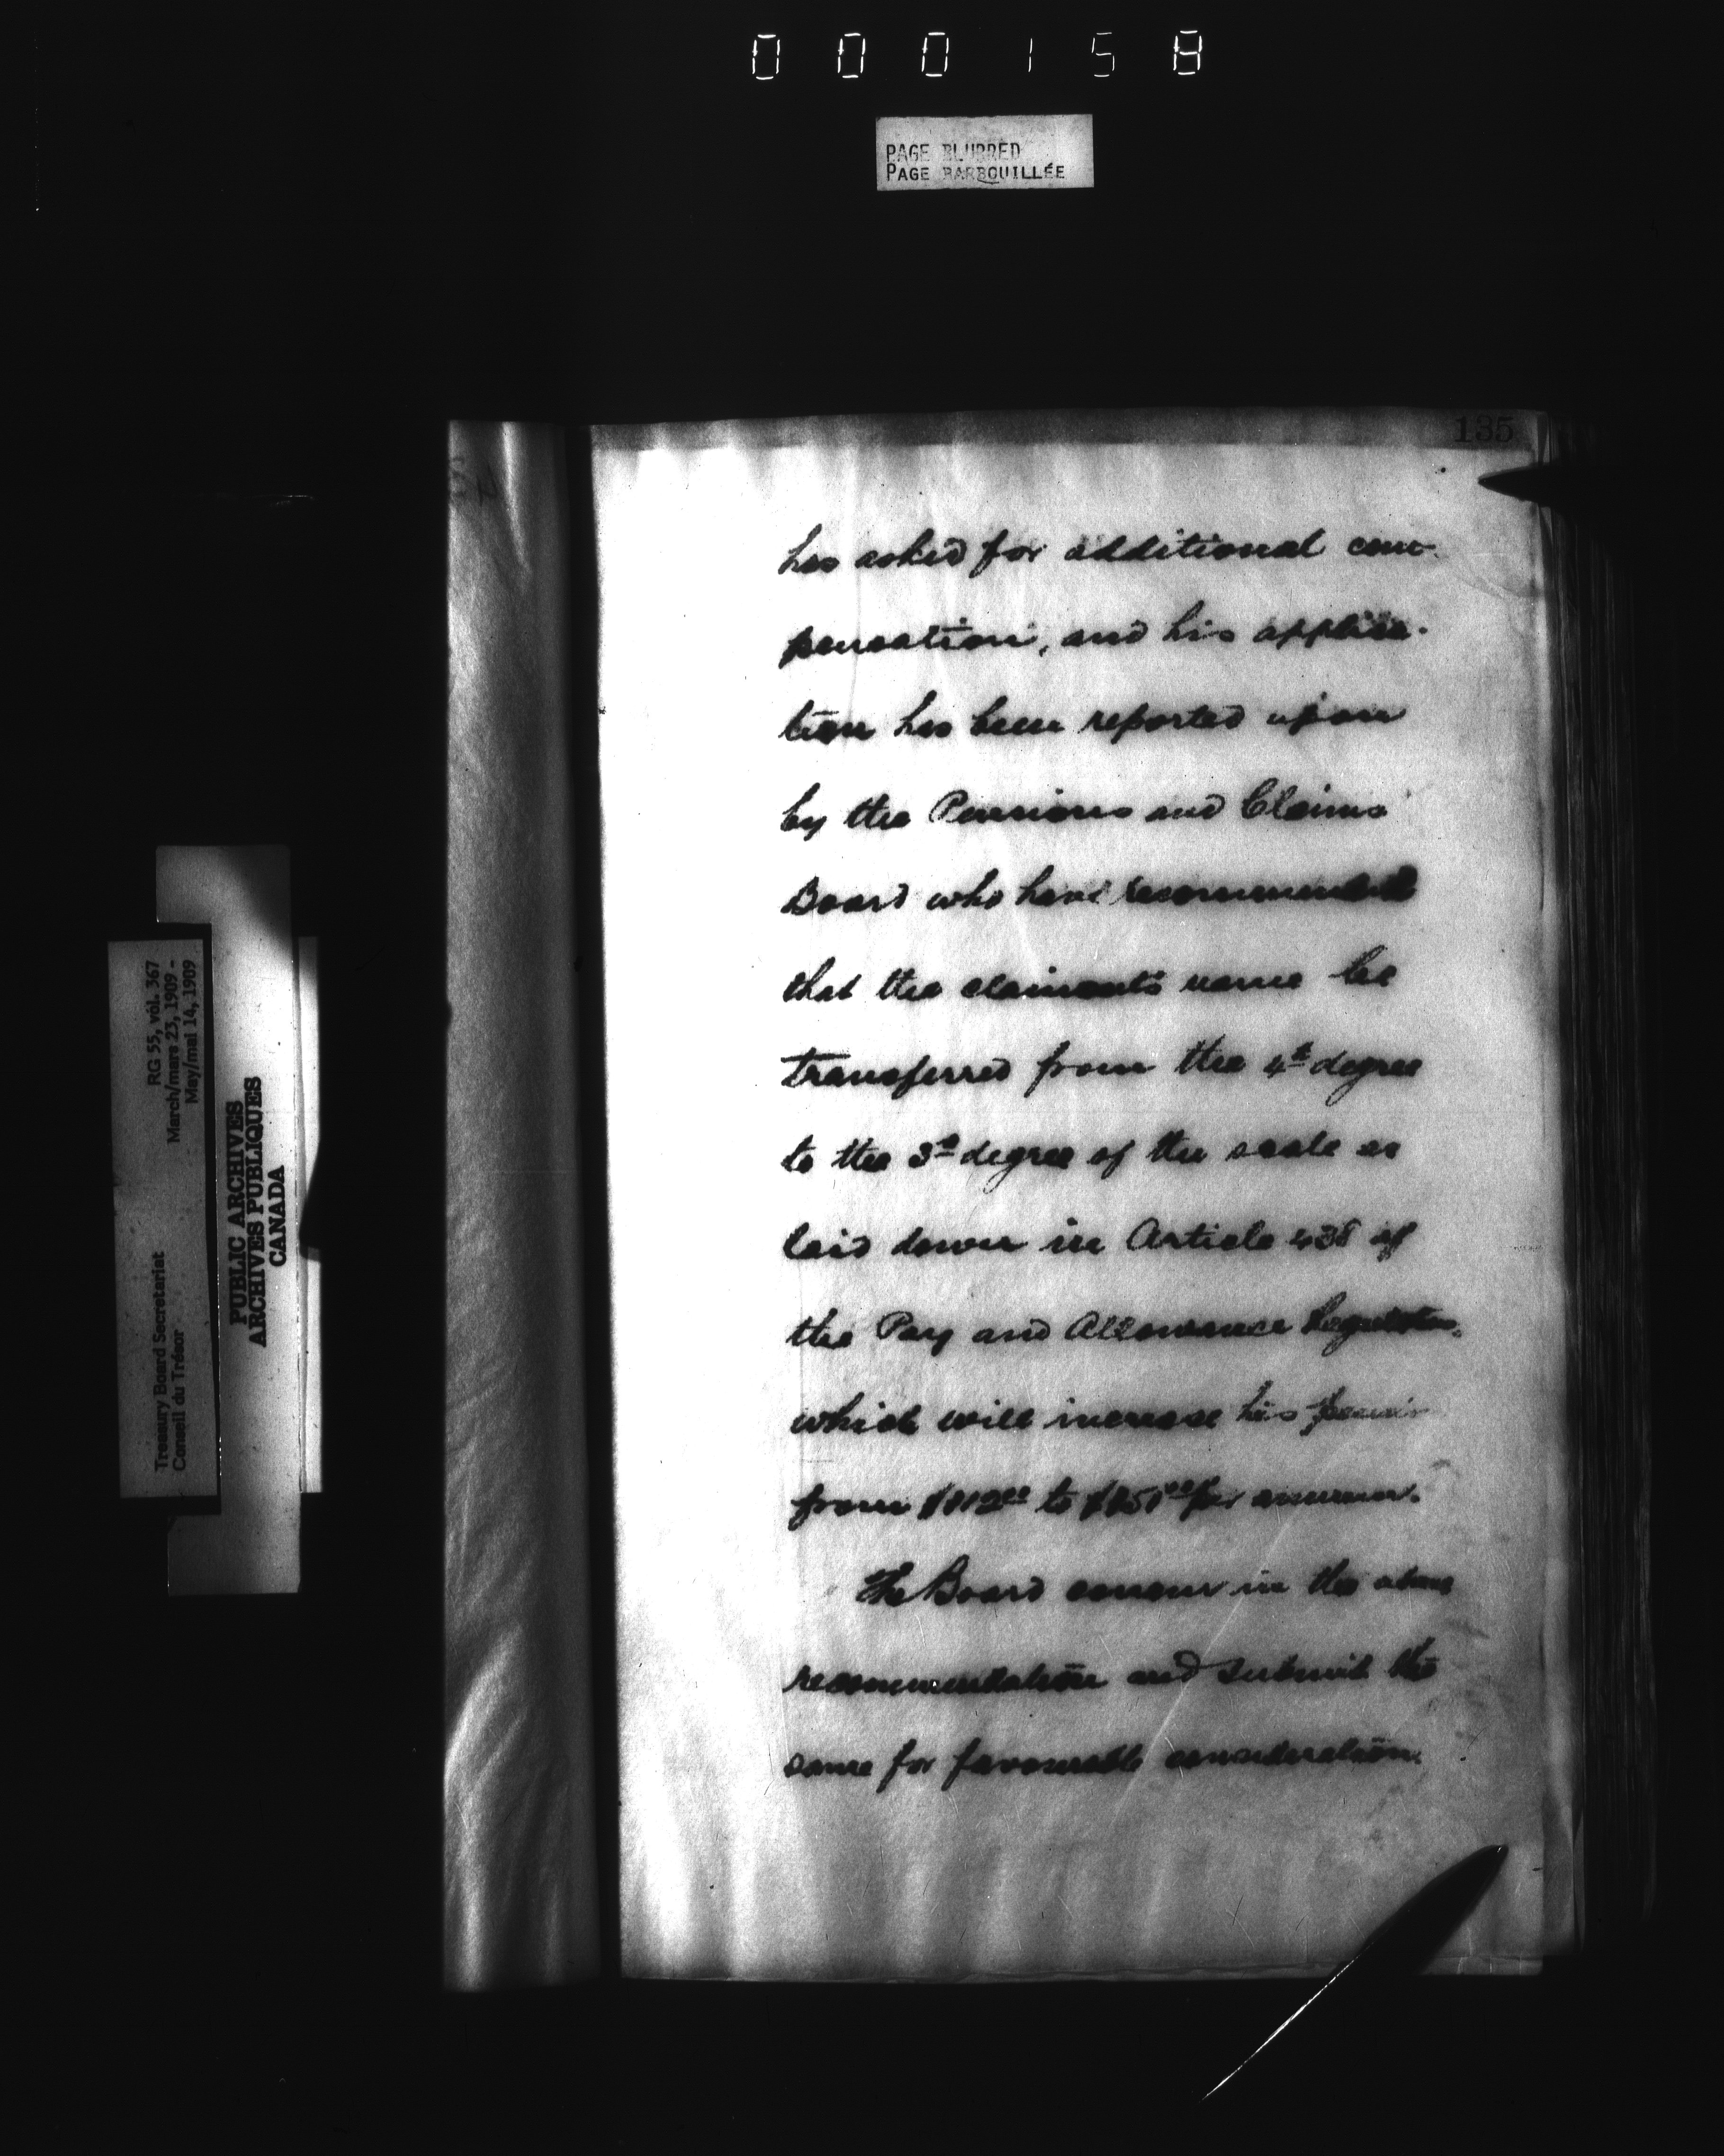 000158
PAGE BLURRED
PAGE BARBOUILLÉE
135
has asked for additional com-
pensation, and his applica-
tion has been reported upon
by the Pensions and Claims
Board who have recommended
that the claimants name be
transferred from the 4th degree
to the 3rd degree of the scale as
laid down in Article 438 of
the Pay and Allowance Regulations
which will increase his pension
from to per annum.
The Board concur in the above
recommendation and submit the
same for favourable consideration.
Treasury Board Secretariat RG 55, vol. 367
Conseil du Trésor March/mars 23, 1909 -
May/mai 14, 1909
PUBLIC ARCHIVES
ARCHIVES PUBLIQUES
CANADA